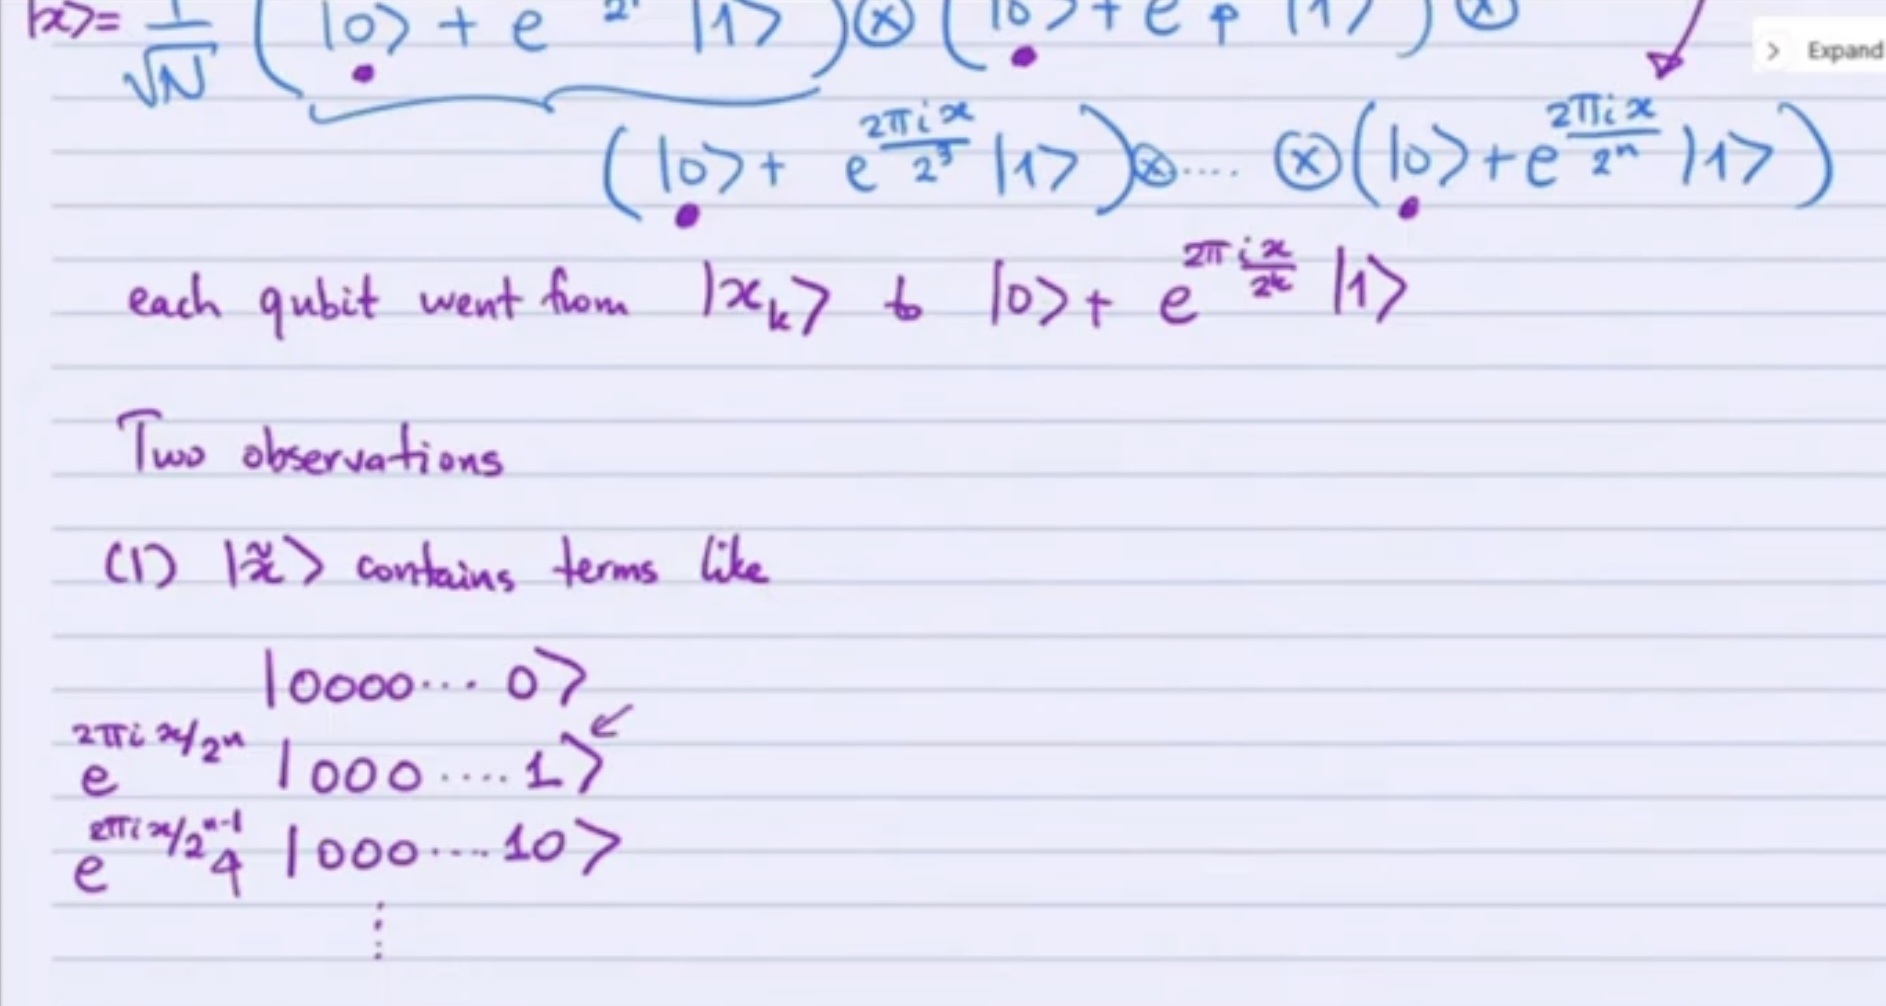 |x̃⟩ = 1/√N (|0⟩ + e^{2πix/2^1} |1⟩) ⊗ (|0⟩ + e^{2πix/2^2} |1⟩) ⊗
> Expand
(|0⟩ + e^{2πix/2^3} |1⟩) ⊗ .... ⊗ (|0⟩ + e^{2πix/2^n} |1⟩)
each qubit went from |x_k⟩ to |0⟩ + e^{2πix/2^k} |1⟩
Two observations
(1) |x̃⟩ contains terms like
|0000 ... 0⟩
e^{2πix/2^n} |000 .... 1⟩
e^{2πix/2^{n-1}} |000 .... 10⟩
⋮